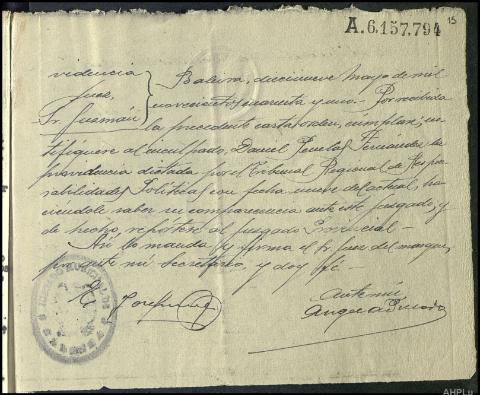 A.6.157.794
15
videncia
juez,
Sr. Guzmán
Baleira, diecinueve Mayo de mil
novecientos cuarenta y uno.- Por recibida
la precedente carta orden, cumplase; no
tifiquese al inculpado, Daniel Fernández la
providencia dictada por el Tribunal Regional de Respon
sabilidades Políticas con fecha nueve del actual, ha
ciendole saber su comparecencia ante este juzgado, y
de hecho, reportese al juzgado Provincial-
Así lo manda y firma el Sr. Juez del margen,
por ante mí Secretario, y doy fé.-
Ante mí
AHPLu